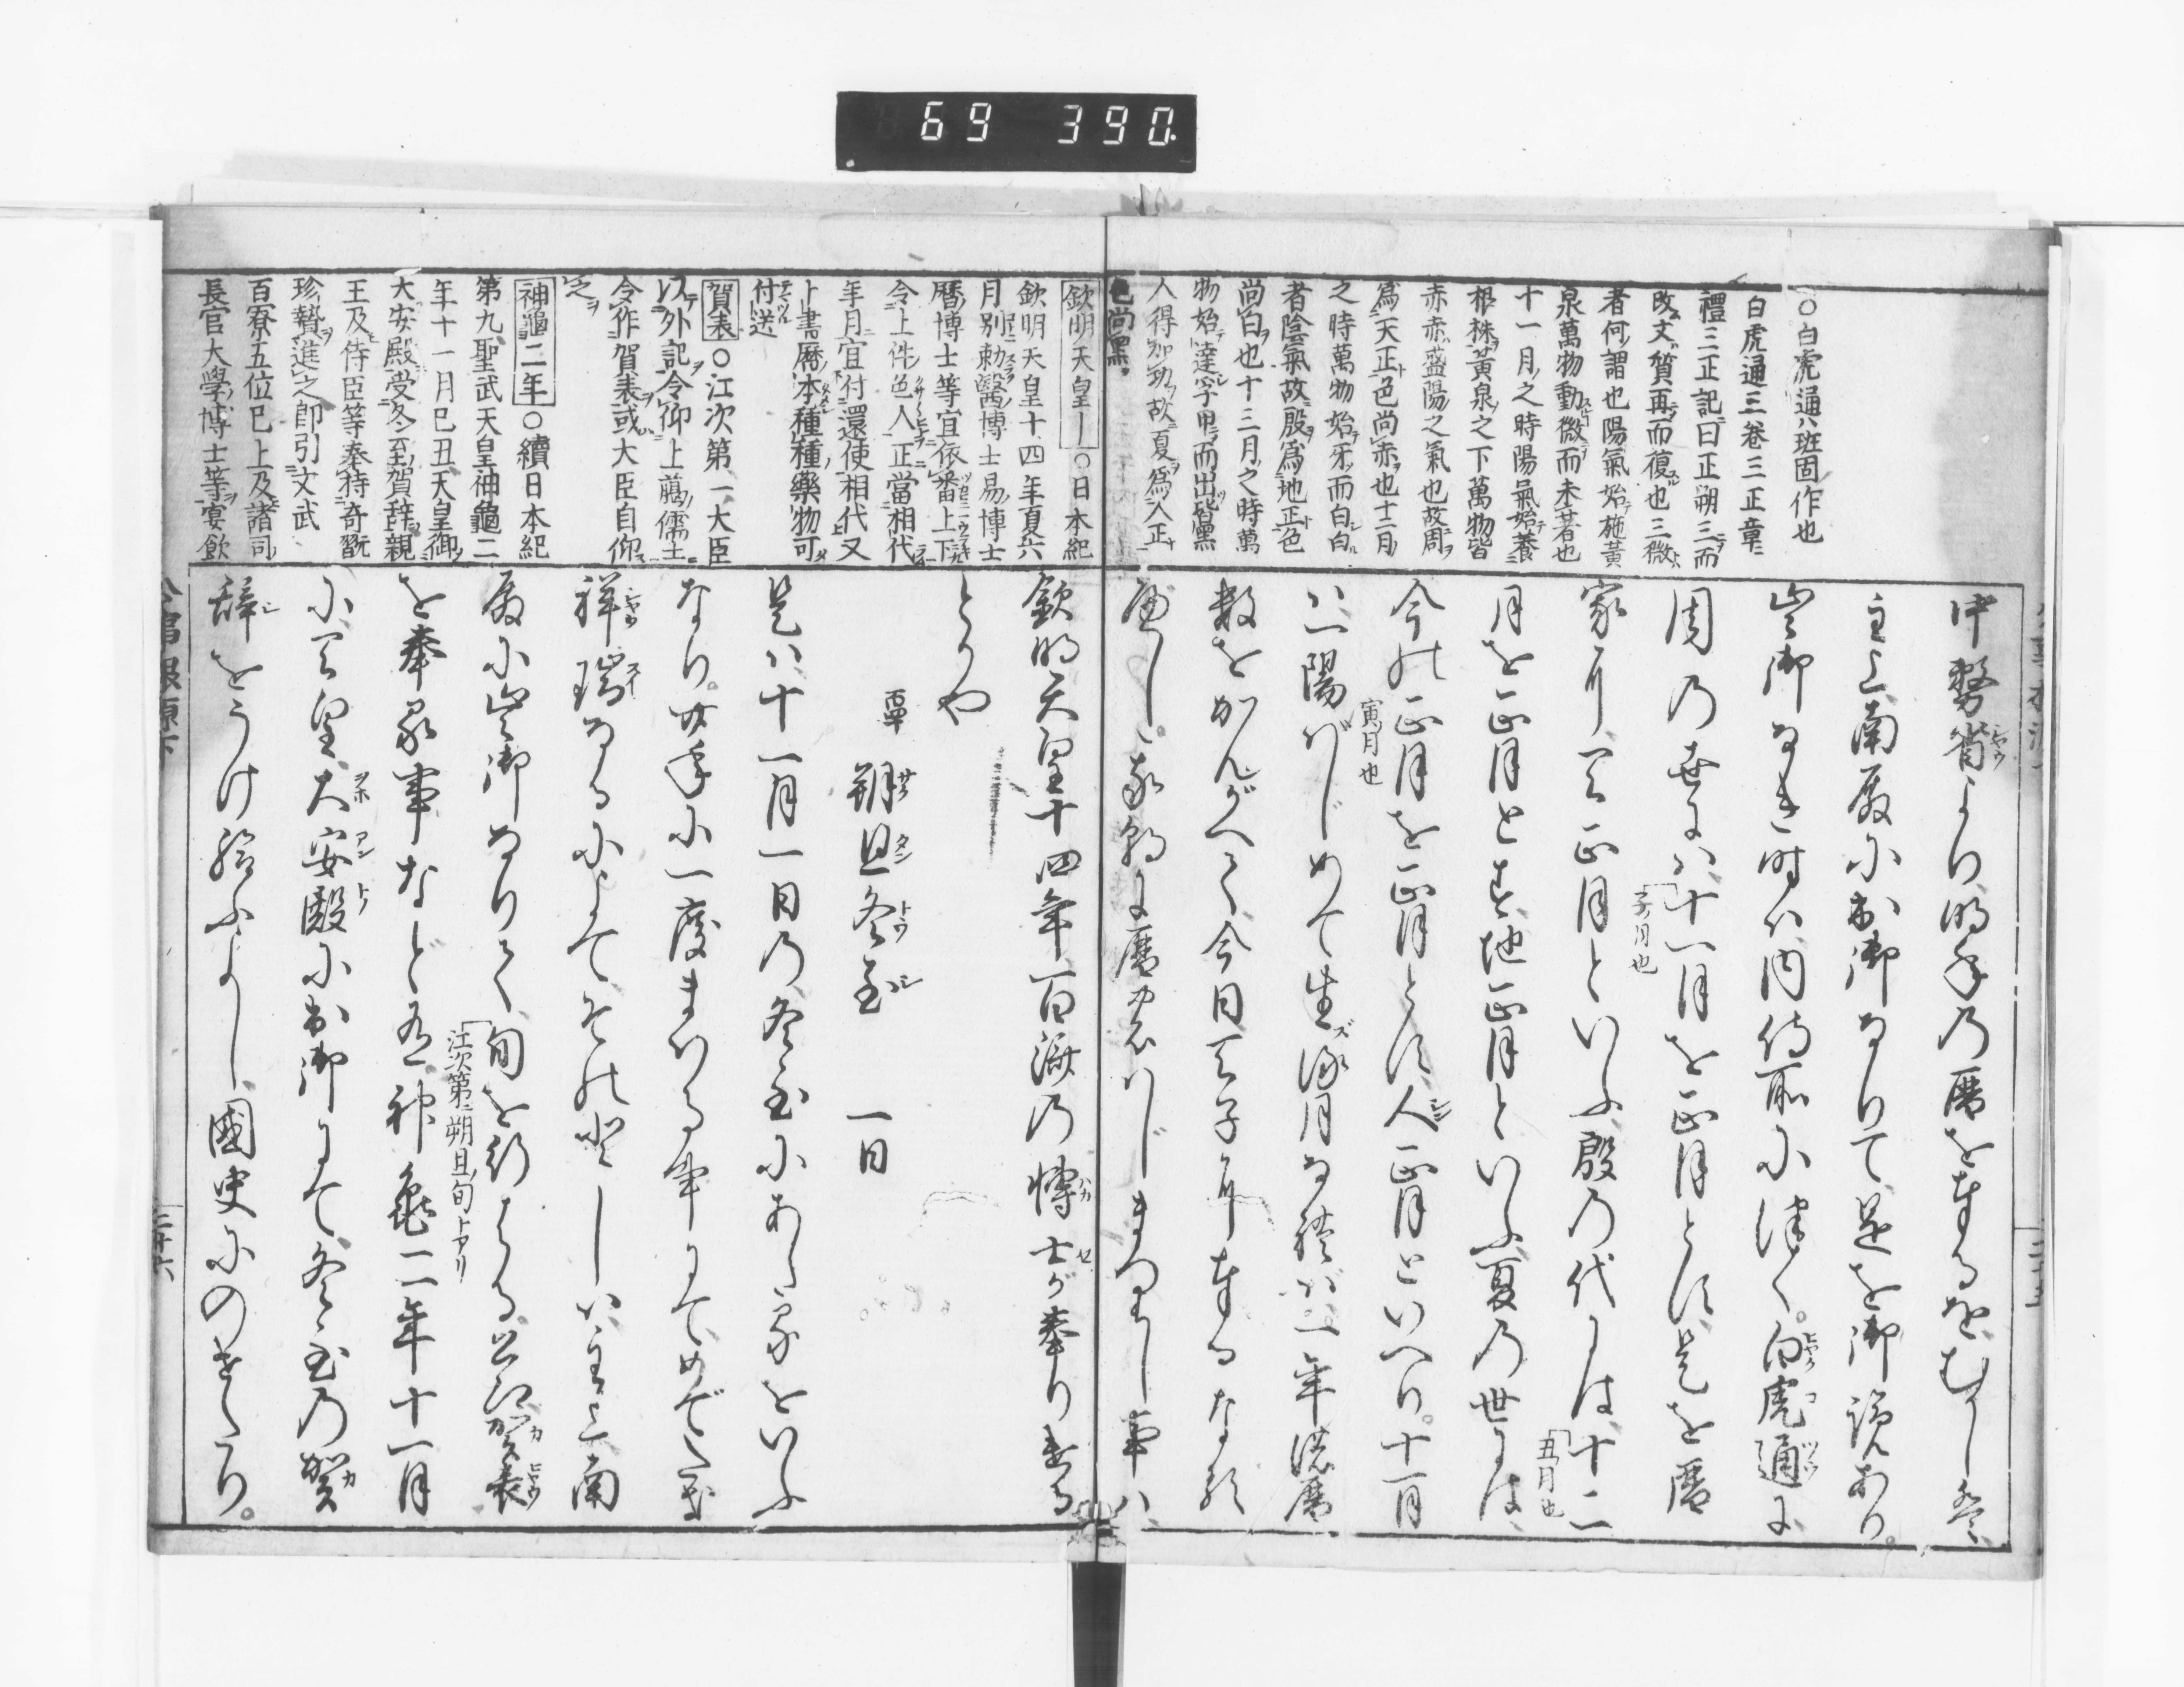 69 390
○白虎通ハ班固作也
白虎通三卷三正章ニ
禮三正記曰正朔三而
改文質再而復也三微
者何謂也陽氣始施黃
泉萬物動微而未著也
十一月之時陽氣始養
根株黃泉之下萬物皆
赤赤盛陽之氣也故周
爲天正色尚赤也十二月
之時萬物始牙而白白
者陰氣故殷爲地正色
尚白也十三月之時萬
物始達孚甲而出皆黑
人得加功故夏爲人正
色尚黑
中務省より明年の曆を奉るをむかしは、
主上南殿に出御なりて是を御覽あり。
出御なき時ハ内侍所に津く。白虎通に
周の世にハ十一月を正月とす是を曆
子ノ月也
家に天正月といふ殷の代には十二
丑月也
月を正月とす地正月といふ夏の世には、
今の正月を正月とす人正月といへり。十一月
寅月也
ハ一陽はじめて生ずる月なれバ一年の曆
數をかんがへて今日天子に奉るなる
べし。我朝に曆のはじまりし事ハ、
欽明天皇
○日本紀
欽明天皇十四年夏六
月別勅醫博士易博士
曆博士等宜依番上下
令上件色人正當相代
年月宜付還使相代又
卜書曆本種種藥物可
付送
賀表
○江次第一大臣
以外記令仰上﨟儒士
令作賀表或大臣自仰
之
神龜二年
○續日本紀
第九聖武天皇神龜二
年十一月己丑天皇御
大安殿受冬至賀辭親
王及侍臣等奉持奇翫
珍贄進之即引文武
百寮五位已上及諸司
長官大學博士等宴飲
欽明天皇十四年百濟の博士が奉りける
とかや
朔旦冬至 一日
是ハ十一月一日の冬至にあたるをいふ
なり。廿年に一度まはる事にて、めでたき
祥瑞なるによてその悦しハ、主上南
殿に出御なりて、旬を行はる。公卿賀表
江次第ニ朔旦旬トアリ
を奉る事など有。神龜二年十一月
に天皇大安殿に出御にて冬至の賀
辭をうけ給ふよし、國史にのせたり。
三十六